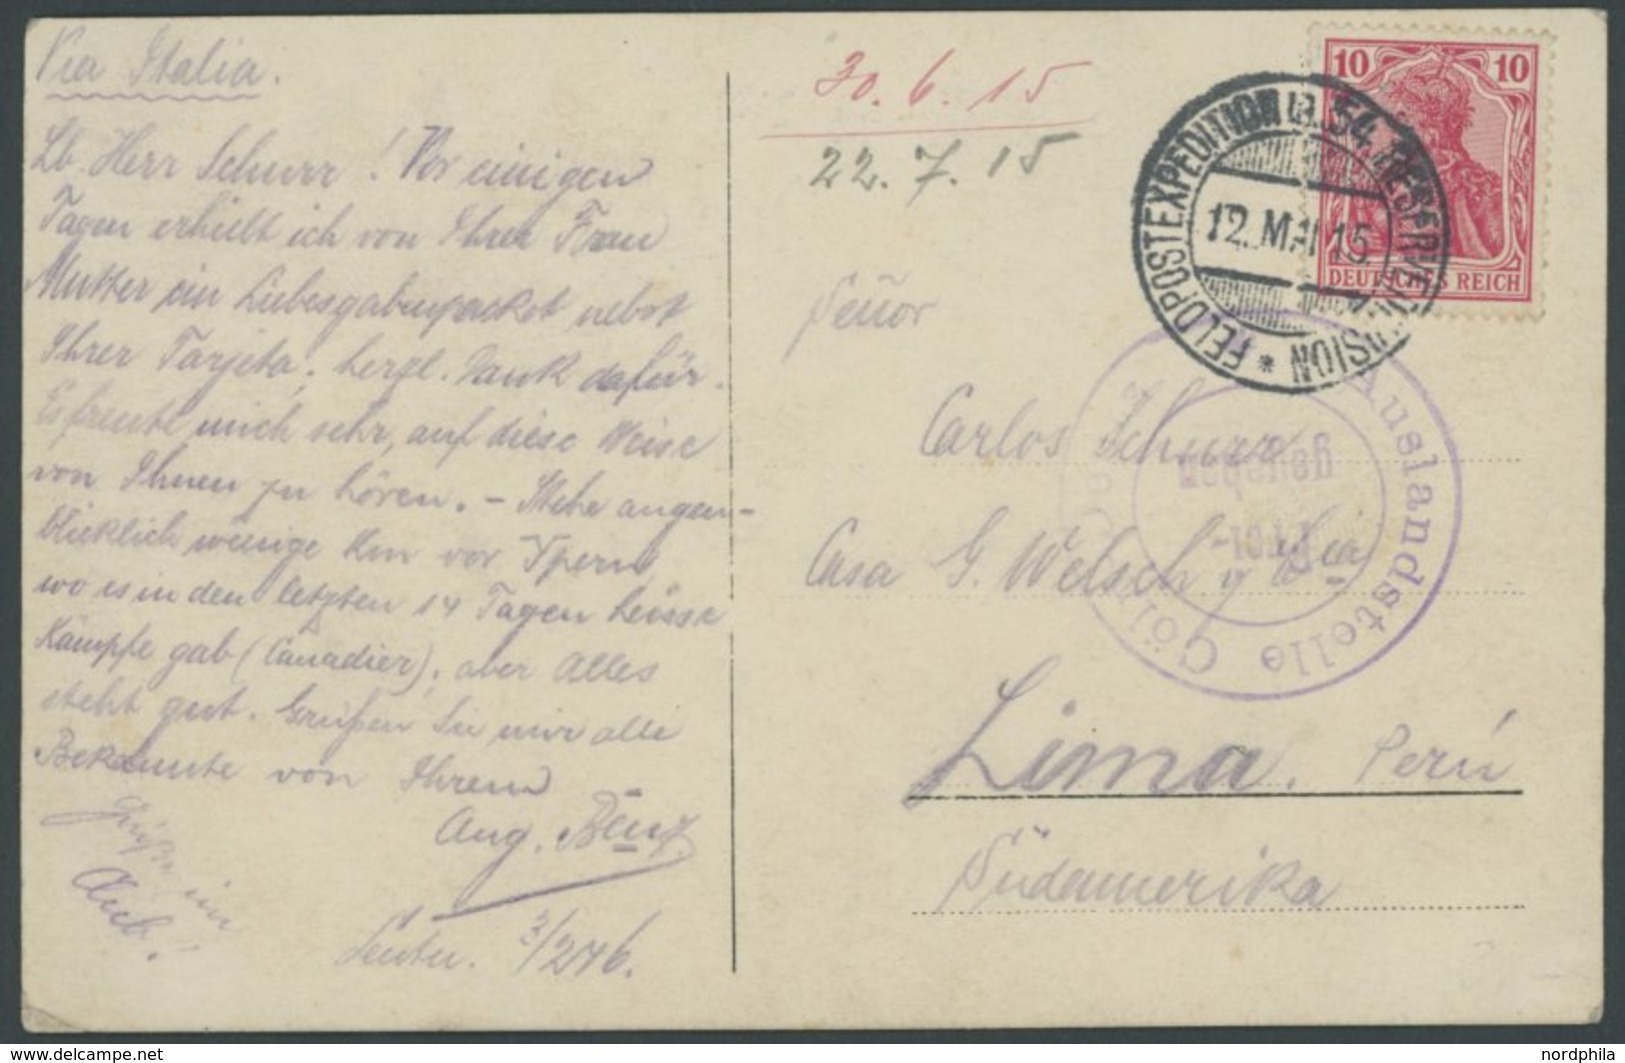 Via Italia.
Lb. Herr Schurr! Vor einigen
Tagen erhielt ich von Ihrer Frau
Mutter ein Liebesgabenpacket nebst
Ihrer Tarjeta, herzl. Dank dafür.
Es freute mich sehr, auf diese Weise
von Ihnen zu hören. – Stehe augen-
blicklich wenige Km vor Ypern,
wo es in den letzten 14 Tagen heisse
Kämpfe gab (Canadier), aber Alles
steht gut. Grüßen Sie mir alle
Bekannte von Ihrem
Aug. Benz
3/246.
30.6.15
22.7.15
10 10
DEUTSCHES REICH
FELDPOSTEXPEDITION D. 54. RESERVEDIVISION *
12. MAI 15
Auslandstelle Cöln
Señor
Carlos Schurr
Casa G. Welsch y Cia
Lima. Perú
Südamerika
nordphila